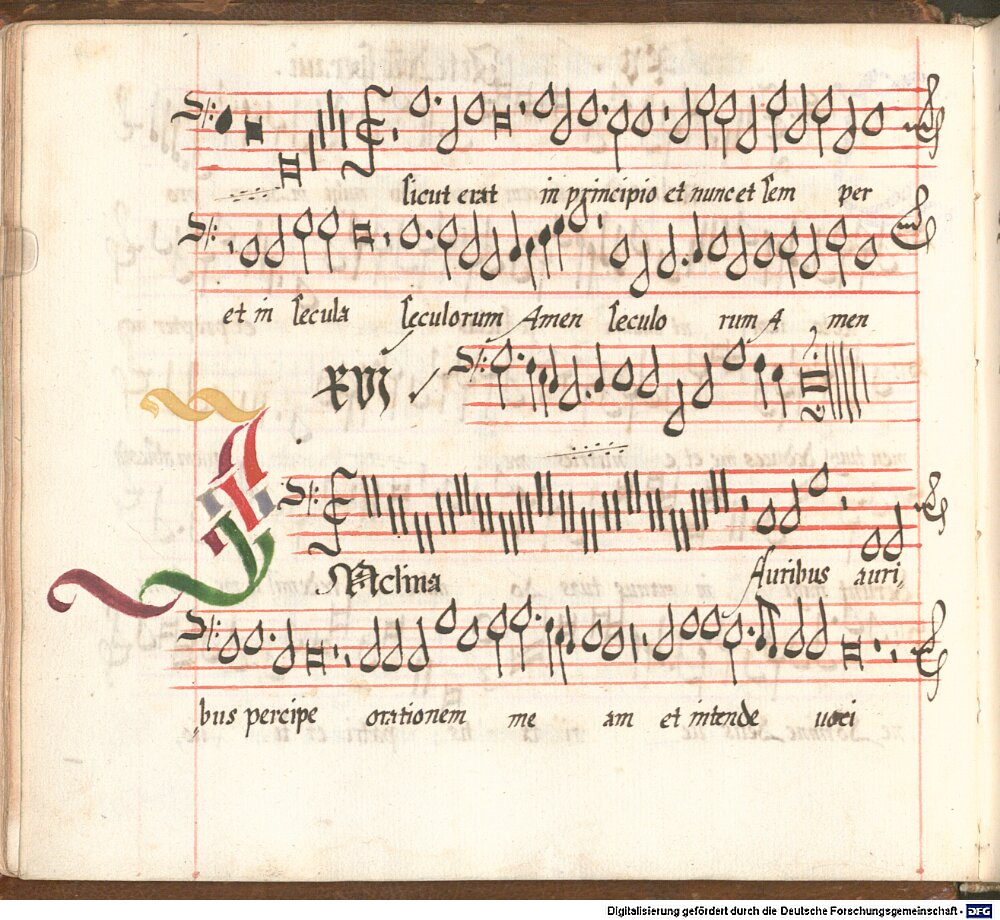 sicut erat in principio et nunc et sem per
et in secula seculorum Amen seculo rum A men
xvi
INclina Auribus auri,
bus percipe orationem me am et intende uoci
Digitalisierung gefördert durch die Deutsche Forschungsgemeinschaft - DFG